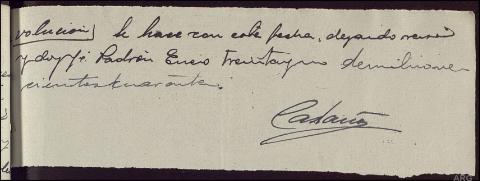 volucion se hace con esta fecha, dejando
y doy fé Padrón Enero treinta y uno de mil nove
cientos cuarenta.
Castaño
ARG